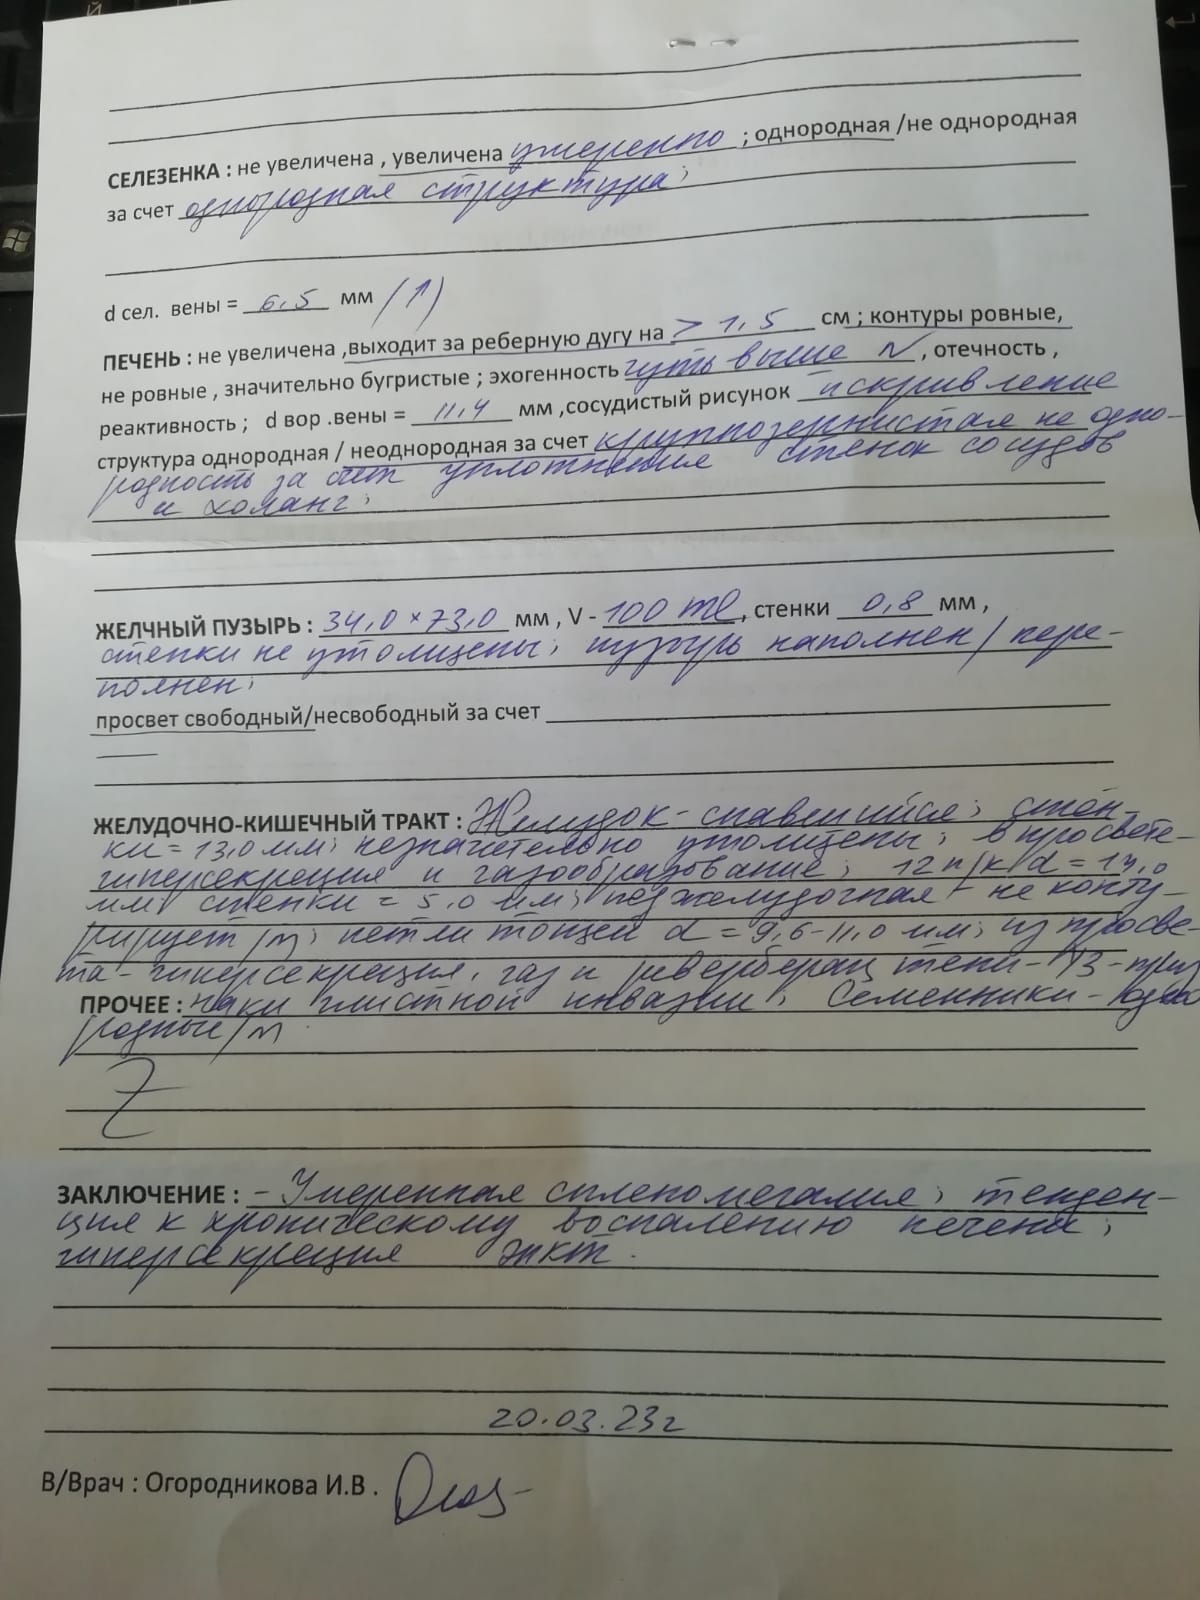 СЕЛЕЗЕНКА : не увеличена , увеличена умеренно ; однородная /не однородная
за счет однородная структура;
d сел. вены = 6,5 мм (↑)
ПЕЧЕНЬ : не увеличена ,выходит за реберную дугу на > 1,5 см ; контуры ровные,
не ровные , значительно бугристые ; эхогенность чуть выше N , отечность ,
реактивность ; d вор .вены = 11,4 мм ,сосудистый рисунок искривление
структура однородная / неоднородная за счет крупнозернистая не одно-
родность за счет уплотнения стенок сосудов
и холанг;
ЖЕЛЧНЫЙ ПУЗЫРЬ : 34,0 × 73,0 мм , V - 100 ml, стенки 0,8 мм ,
стенки не утолщены; пузырь наполнен/пере-
полнен;
просвет свободный/несвободный за счет
ЖЕЛУДОЧНО-КИШЕЧНЫЙ ТРАКТ : Желудок - спавшийся; стен-
ки = 13,0 мм; незначительно утолщены; в просвете-
гиперсекреция и газообразование; 12 п/к d = 14,0
мм стенки = 5,0 мм; поджелудочная - не конту-
рирует/m; петли тощей d = 9,6-11,0 мм; из просве-
та - гиперсекреция, газ и ревербера тени -
ПРОЧЕЕ : наки глистной инвазии; Семенники - одно
родные/m
Z
ЗАКЛЮЧЕНИЕ : - Умеренная спленомегалия; тенден-
ция к хроническому воспалению печени;
гиперсекреция ЖКТ.
20.03.23г
В/Врач : Огородникова И.В .